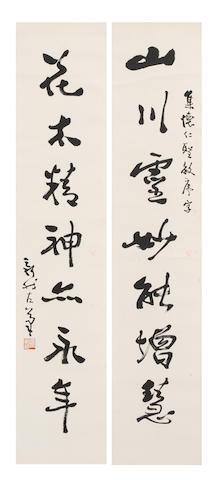 山川靈妙能增慧
集懷仁聖教序字
花木精神亦永年